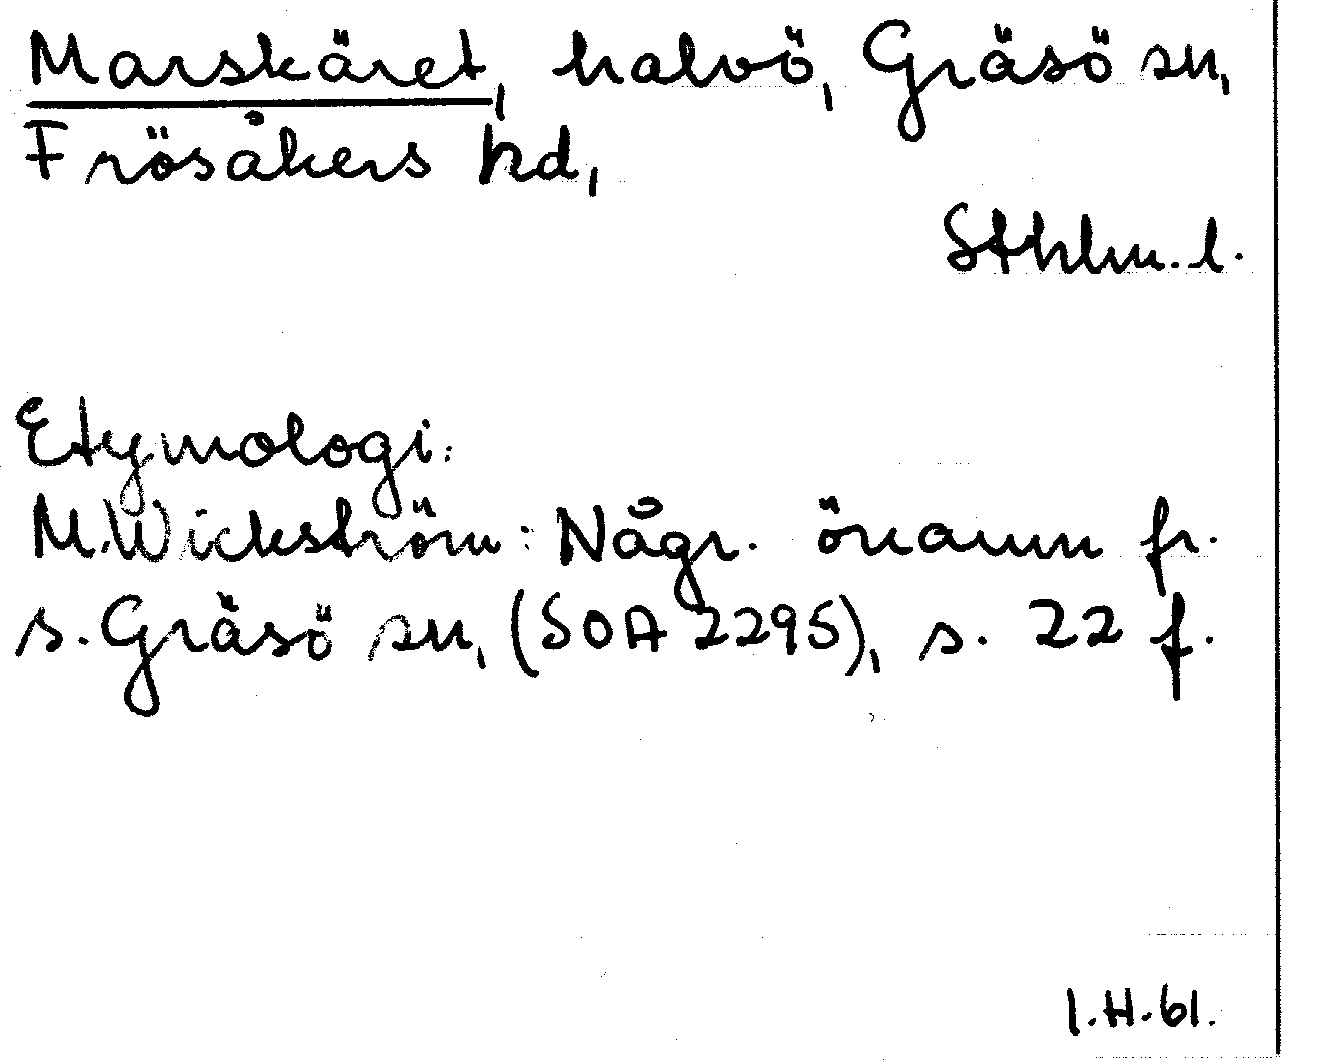 Marskäret, halvö, Gräsö sn,
Frösåkers hd,
Sthlm. l.
Etymologi:
M. Wickström: Någr. önamn fr.
s. Gräsö sn, (SOA 2295), s. 22 f.
I.H.61.